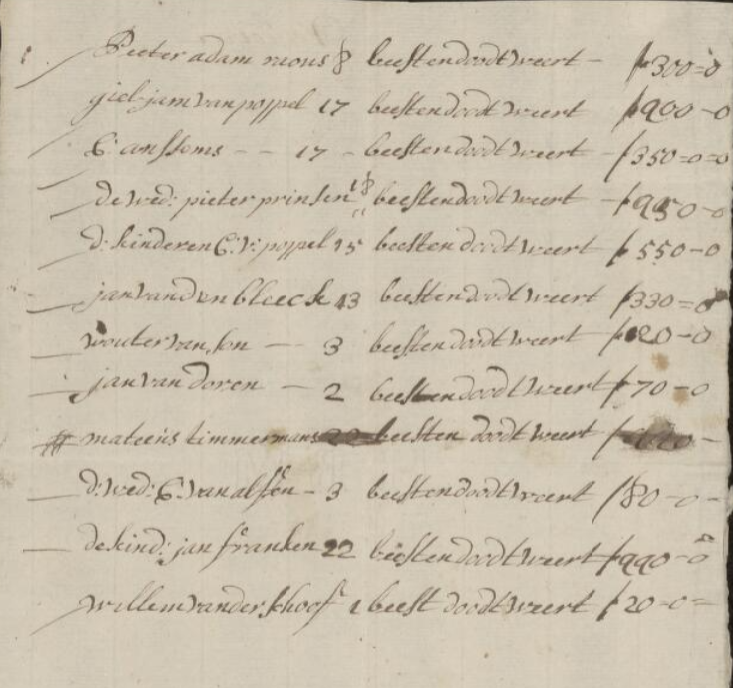 Peeter adam mous 8 beesten doodt weert - f 300=0
giel jam van poppel 17 beesten doodt weert f 900-0
C: anssems - - 17 - beesten doodt weert - f 350=0=0
de wed: pieter prinsen 18 beesten doodt weert - f 950-0
d: kinderen C: v: poppel 15 beesten doodt weert f 550-0
jan vanden bleeck 13 beesten doodt weert f 330=0
wouter van son - 3 beesten doodt weert f 120-0
jan van doren - 2 beesten doodt weert f 70-0
mateeus timmermans 22 beesten doodt weert f -
d: wed: C: van alfen - 3 beesten doodt weert f 80-0-
de kind: jan francken 22 beesten doodt weert f 990-0
willem vander schoof 1 beest doodt weert f 20-0=